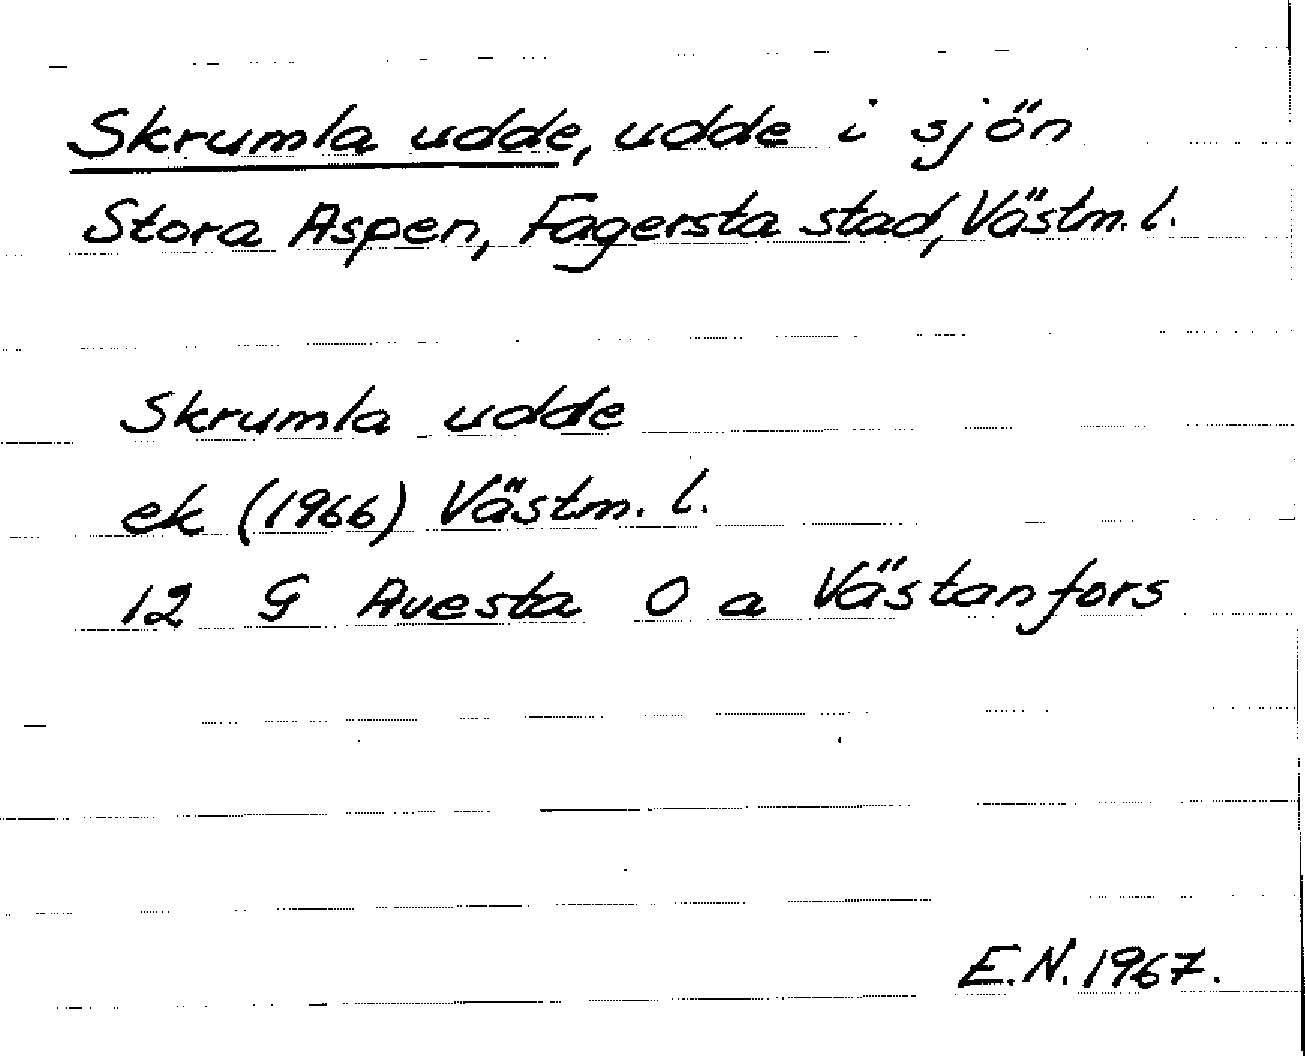 Skrumla udde, udde i sjön
Stora Aspen, Fagersta stad, Västm. l.
Skrumla udde
ek (1966) Västm. l.
12 G Avesta O a Västanfors
E.N. 1967.